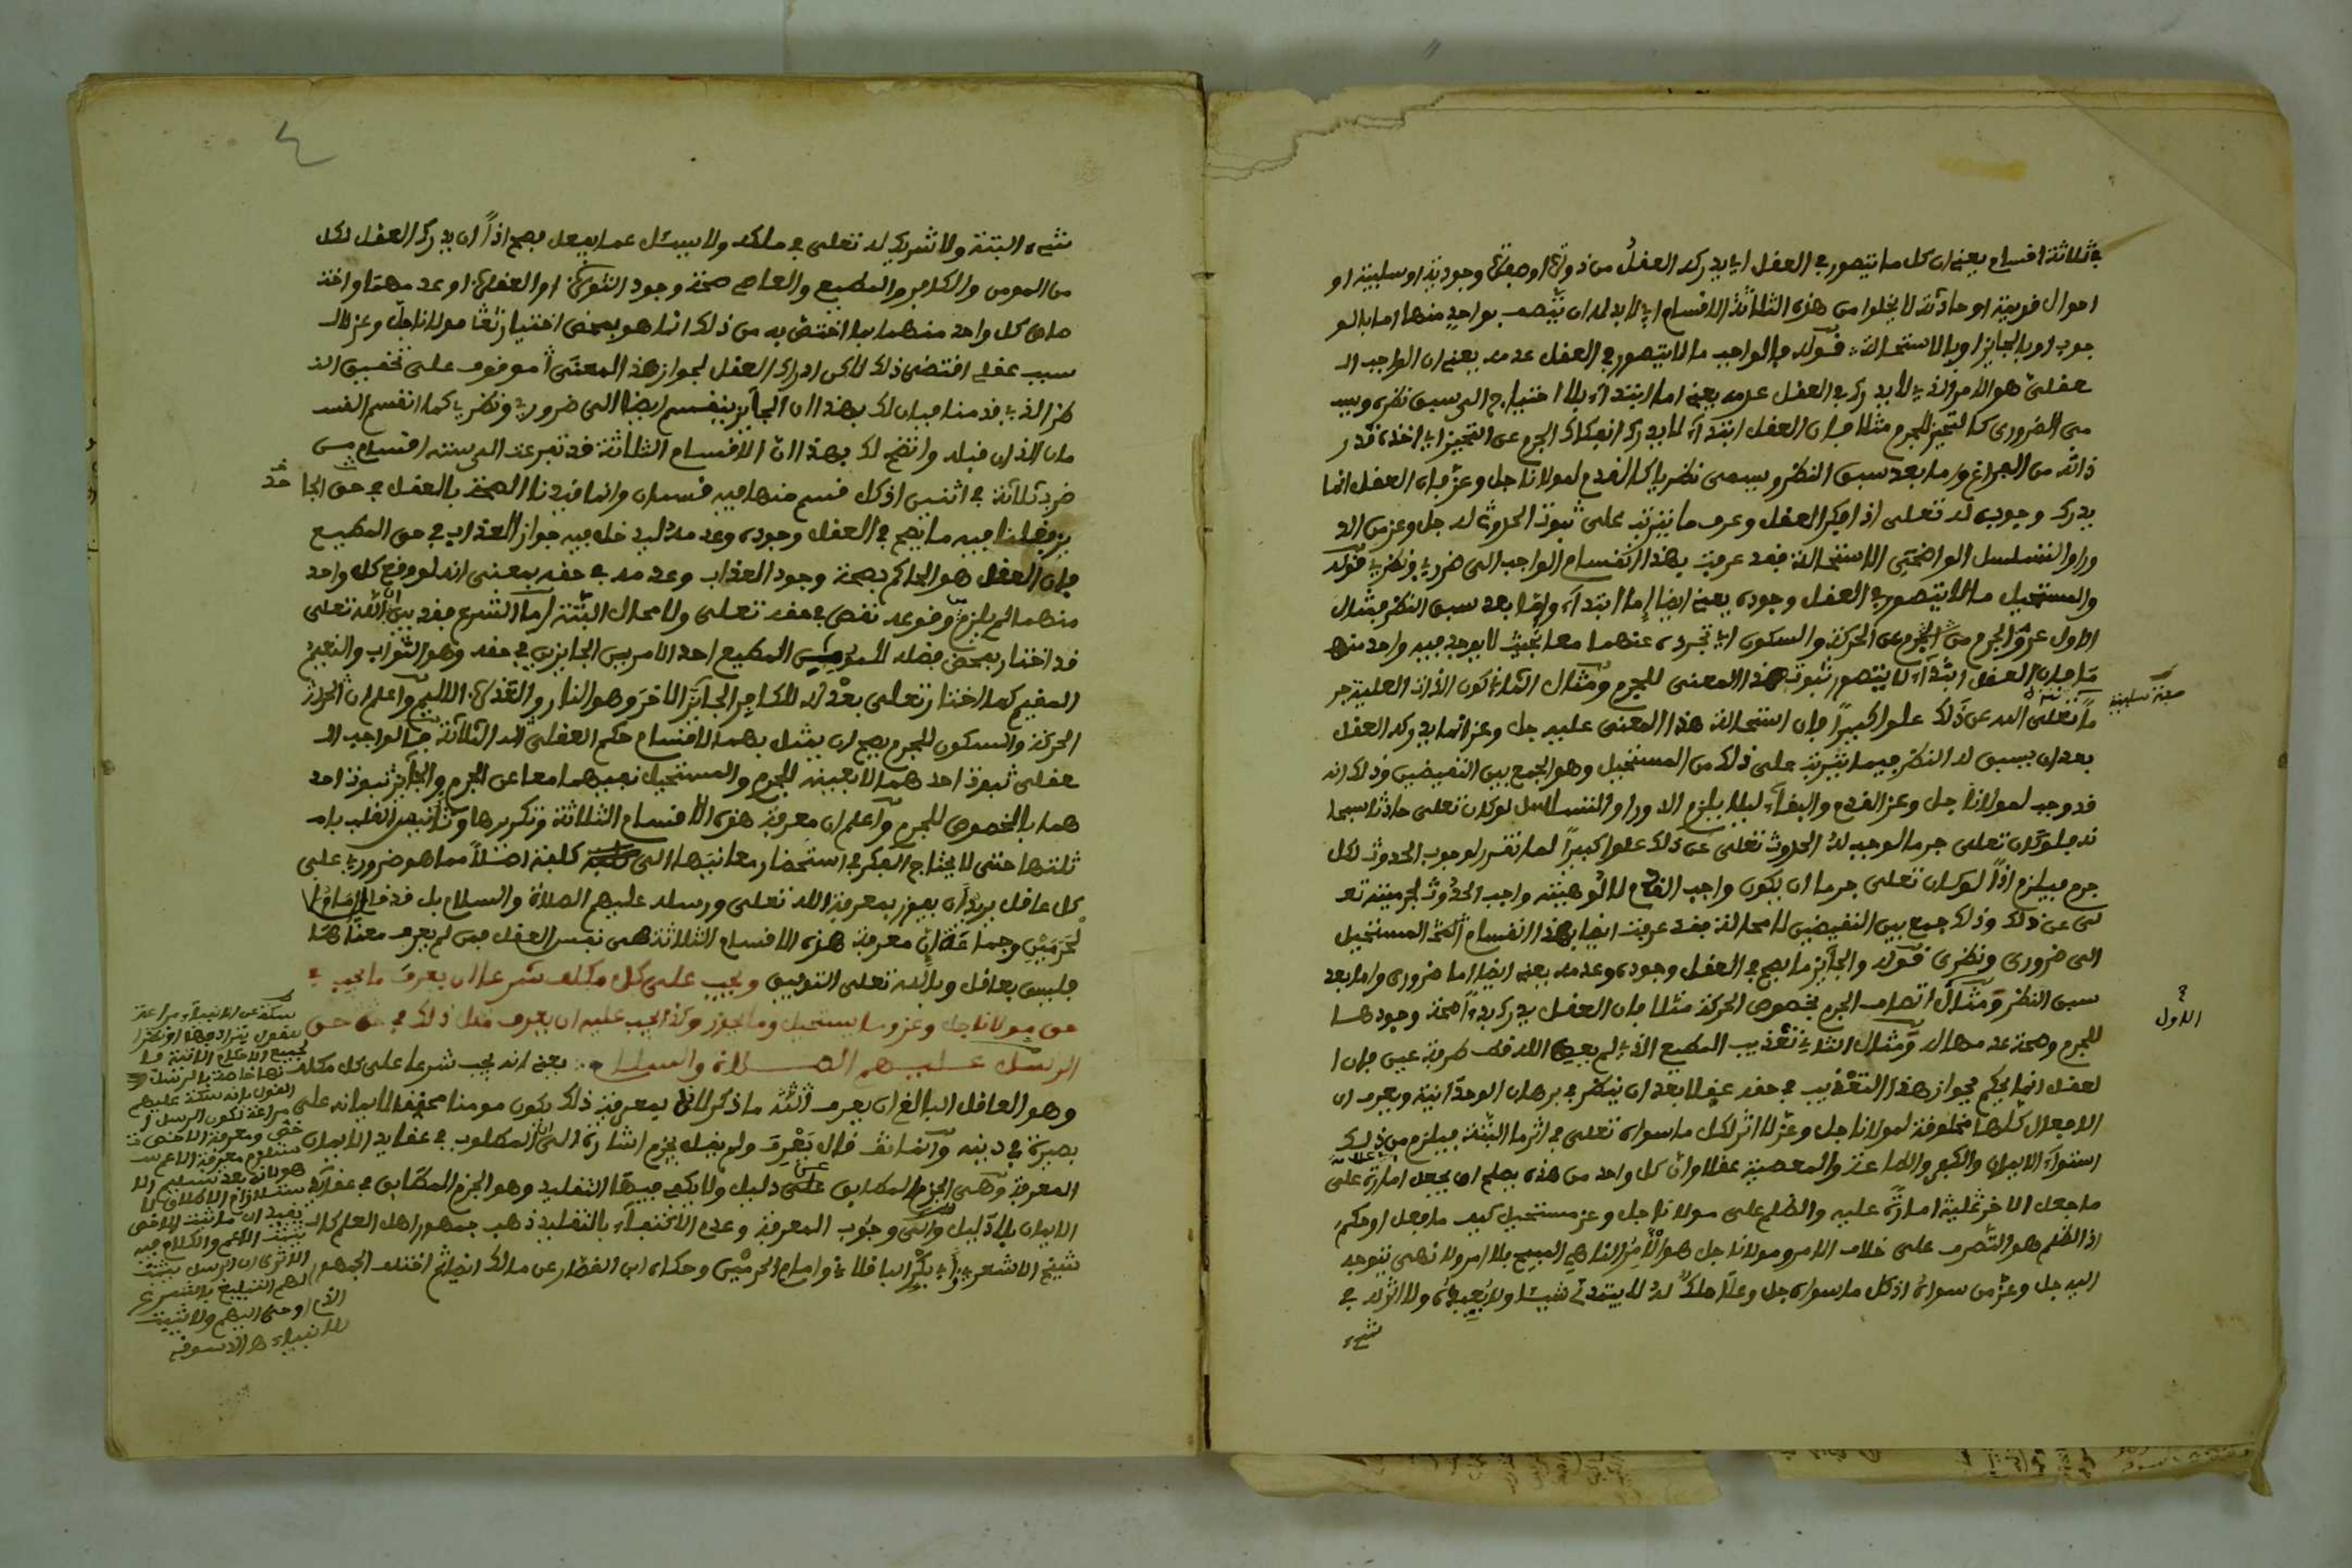 في ثلاثة اقسام يعني ان كل ما يتصور في العقل اي يدركه العقل من ذوات او صفات وجودية او سلبية او
احوال قديمة او حادثة لا يخلوا من هذه الثلاثة الاقسام اي لا بد له ان يتصف بواحد منها اما بالو
جوب او بالجايز او بالاستحالة قوله فالواجب ما لا يتصور في العقل عدمه يعني ان الواجب الـ
عقلي هو الامر الذي لا يدرك في العقل عدمه يعني اما ابتداء بلا احتياج الى سبق نظر ويسـ
مى الضروري كالتحيز للجرم مثلا فان العقل ابتداء لا يدرك انفكاك الجرم عن التحيز اي اخذه قدر
ذاته من الفراغ واما بعد سبق النظر ويسمى نظريا كالقدم لمولانا جل وعز فان العقل انما
يدرك وجوبه له تعلى اذا فكر العقل وعرف ما يترتب على ثبوت الحدوث له جل وعز من الد
ور او التسلسل الواضحي الاستحالة فقد عرفت بهذا انقسام الواجب الى ضروري ونظري قوله
والمستحيل ما لا يتصور في العقل وجوده يعني ايضا اما ابتداء واما بعد سبق النظر فمثال
الاول عرو الجرم عن الحركة والسكون اي تجرده عنهما معا بحيث لا يوجد فيه واحد منهـ
ما فان العقل ابتداء لا يتصور ثبوت هذا المعنى للجرم ومثال الثاني كون الذات العلية جر
صفة سلبية
ما تعلى الله عن ذلك علوا كبيرا فان استحالة هذا المعنى عليه جل وعز انما يدركه العقل
بعد ان يسبق له النظر فيما يترتب على ذلك من المستحيل وهو الجمع بين النقيضين وذلك انه
قد وجب لمولانا جل وعز القدم والبقاء ليلا يلزم الدور او التسلسل لو كان تعلى حادثا سبحا
نه فلو كان تعلى جرما لوجب له الحدوث تعلى عن ذلك علوا كبيرا لما تقرر لوجوب الحدوث لكل
جرم فيلزم اذا لو كان تعلى جرما ان يكون واجب القدم لالوهيته واجب الحدوث لجرميته تعـ
لى عن ذلك وذلك جمع بين النقيضين لا محالة فقد عرفت ايضا بهذا انقسام المستحيل
الى ضروري ونظري قوله والجايز ما يصح في العقل وجوده وعدمه يعني ايضا اما ضروري واما بعد
سبق النظر ومثال اتصاف الجرم بخصوص الحركة مثلا فان العقل يدرك بدءا صحة وجودها
الاول
للجرم وصحة عدمها له ومثال الثاني تعذيب المطيع الذي لم يعص الله قط طرفة عين فان ا
لعقل انما يحكم بجواز هذا التعذيب في حقه عقلا بعد ان ينظر في برهان الوحدانية ويعرف ان
الافعال كلها مخلوقة لمولانا جل وعز لا اثر لكل ما سواه تعلى في اثر ما البتة فيلزم من ذلك
استواء الايمان والكفر والطاعة والمعصية عقلا وان كل واحد من هذه يصلح ان يجعل امارة على
ما جعل الاخر عليه امارة عليه والظلم على مولانا جل وعز مستحيل كيف ما فعل او حكم
اذ الظلم هو التصرف على خلاف الامر ومولانا جل هو الامر الناهي المبيح بلا امر ولا نهي يتوجه
اليه جل وعز من سواه اذ كل ما سواه جل وعلا ملك له لا يبتدئ شيئا ولا يعيده ولا اثر له في
شيء
شيء البتة ولا شريك له تعلى في ملكه ولا يسئل عما يفعل فصح اذا ان يدرك العقل لكل
من المومن والكافر والمطيع والعاصي صحة وجود الثواب او العقاب او عدمهما واختـ
صاص كل واحد منهما بما اختص به من ذلك انما هو بمحض اختيار تعا مولانا جل وعز لا لـ
سبب عقلي اقتضى ذلك لكن ادراك العقل لجواز هذا المعنى موقوف على تحقيق النـ
ظر الذي قدمنا فبان لك بهذا ان الجايز ينقسم ايضا الى ضروري ونظري كما انقسم القسـ
مان اللذان قبله واتضح لك بهذا ان الاقسام الثلاثة قد تفرعت الى ستة اقسام من
ضرب ثلاثة في اثنين اذ كل قسم منها فيه قسمان وانما قيدنا الصحة بالعقل في حق الجا
يز فقلنا فيه ما يصح في العقل وجوده وعدمه ليدخل فيه جواز العذاب في حق المطيع
فان العقل هو الحاكم بصحة وجود العذاب وعدمه في حقه بمعنى انه لو وقع كل واحد
منهما لم يلزم من وقوعه نقص في حقه تعلى ولا محال البتة اما الشرع فقد بين ان الله تعلى
قد اختار بمحض فضله للمومن المطيع احد الامرين الجايزين في حقه وهو الثواب والنعيم
المقيم كما اختار تعلى بعدله للكافر الجايز الاخر وهو النار والعذاب الاليم واعلم ان الحركة
الحركة والسكون للجرم يصح ان يمثل بهما لاقسام حكم العقلي الثلاثة فالواجب الـ
عقلي ثبوت احدهما لا بعينه للجرم والمستحيل نفيهما معا عن الجرم والجايز ثبوت احد
هما بالخصوص للجرم واعلم ان معرفة هذه الاقسام الثلاثة وتكريرها وتانيس القلب بامـ
ثلتها حتى لا يحتاج الفكر في استحضار معانيها الى كلفة اصلا مما هو ضروري على
كل عاقل يريد ان يفوز بمعرفة الله تعلى ورسله عليهم الصلاة والسلام بل قد قال امام ا
لحرمين وجماعة ان معرفة هذه الاقسام الثلاثة هي نفس العقل فمن لم يعرف معناها
فليس بعاقل وبالله تعلى التوفيق ويجب على كل مكلف شرعا ان يعرف ما يجب في
حق مولانا جل وعز وما يستحيل وما يجوز وكذا يجب عليه ان يعرف مثل ذلك في حق
الرسل عليهم الصلاة والسلام يعني انه يجب شرعا على كل مكلف
وهو العاقل البالغ ان يعرف ما ذكر لانه بمعرفة ذلك يكون مومنا محققا لايمانه على
بصيرة في دينه وانما قال يعرف ولم يقل يجزم اشارة الى ان المطلوب في عقايد الايمان
المعرفة وهي الجزم المطابق عن دليل ولا يكفي فيها التقليد وهو الجزم المطابق في عقايد
الايمان بلا دليل والى وجوب المعرفة وعدم الاكتفاء بالتقليد ذهب جمهور اهل العلم كالـ
شيخ الاشعري وابي بكر الباقلاني وامام الحرمين وحكاه ابن القصار عن مالك ايضا ثم اختلف الجمهور